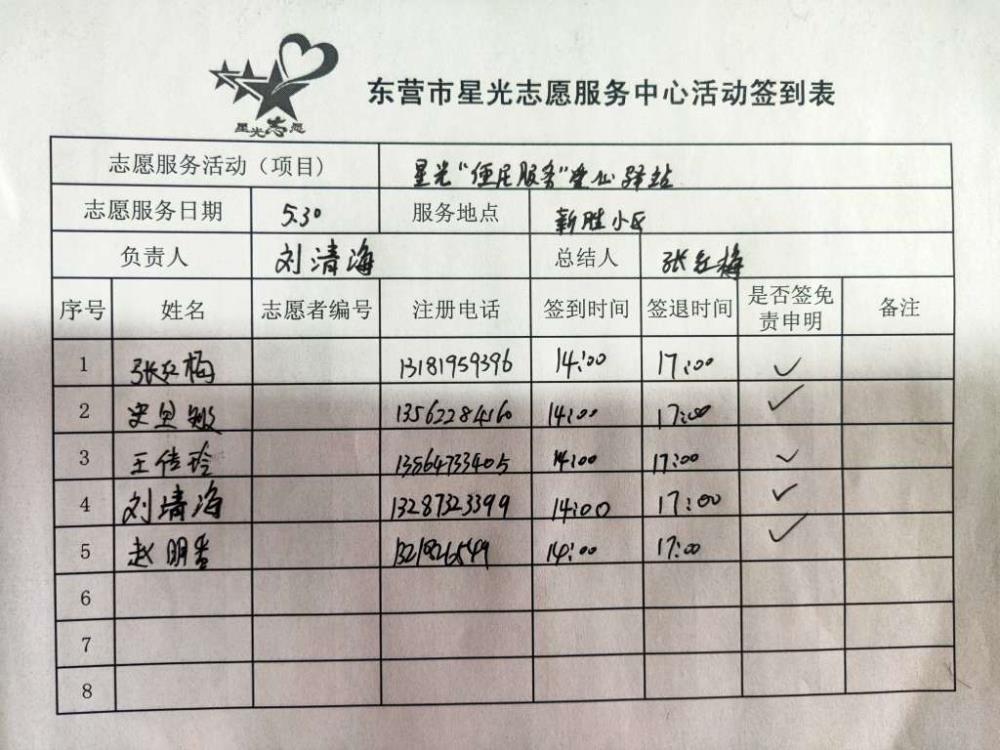 星光志愿
东营市星光志愿服务中心活动签到表
志愿服务活动（项目） 星光“便民服务”爱心驿站
志愿服务日期 5.30 服务地点 新胜小区
负责人 刘清海 总结人 张红梅
序号 姓名 志愿者编号 注册电话 签到时间 签退时间 是否签免责申明 备注
1 张红梅 13181959396 14:00 17:00 ✓
2 史 敏 13562284160 14:00 17:00 ✓
3 王传玲 13564733405 14:00 17:00 ✓
4 刘清海 13287323399 14:00 17:00 ✓
5 赵明香 14:00 17:00 ✓
6
7
8